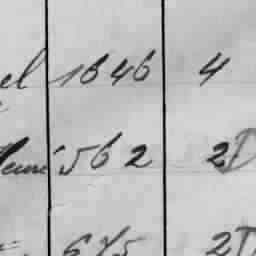 el 1646 4
562 2D
675 2D